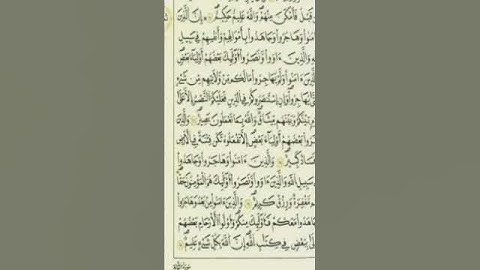 قبل فأمكن منهم والله عليم حكيم إن الذين
ءامنوا وهاجروا وجاهدوا بأموالهم وأنفسهم في سبيل
والذين ءاووا ونصروا أولئك بعضهم أولياء بعض
ءامنوا ولم يهاجروا ما لكم من ولايتهم من شيء
حتى يهاجروا وإن استنصروكم في الدين فعليكم النصر إلا على
بينكم وبينهم ميثاق والله بما تعملون بصير والذين
بعضهم أولياء بعض إلا تفعلوه تكن فتنة في الأرض
وفساد كبير والذين ءامنوا وهاجروا وجاهدوا
سبيل الله والذين ءاووا ونصروا أولئك هم المؤمنون حقا
مغفرة ورزق كريم والذين ءامنوا من بعد وهاجروا
وجاهدوا معكم فأولئك منكم وأولوا الأرحام بعضهم
ببعض في كتاب الله إن الله بكل شيء عليم